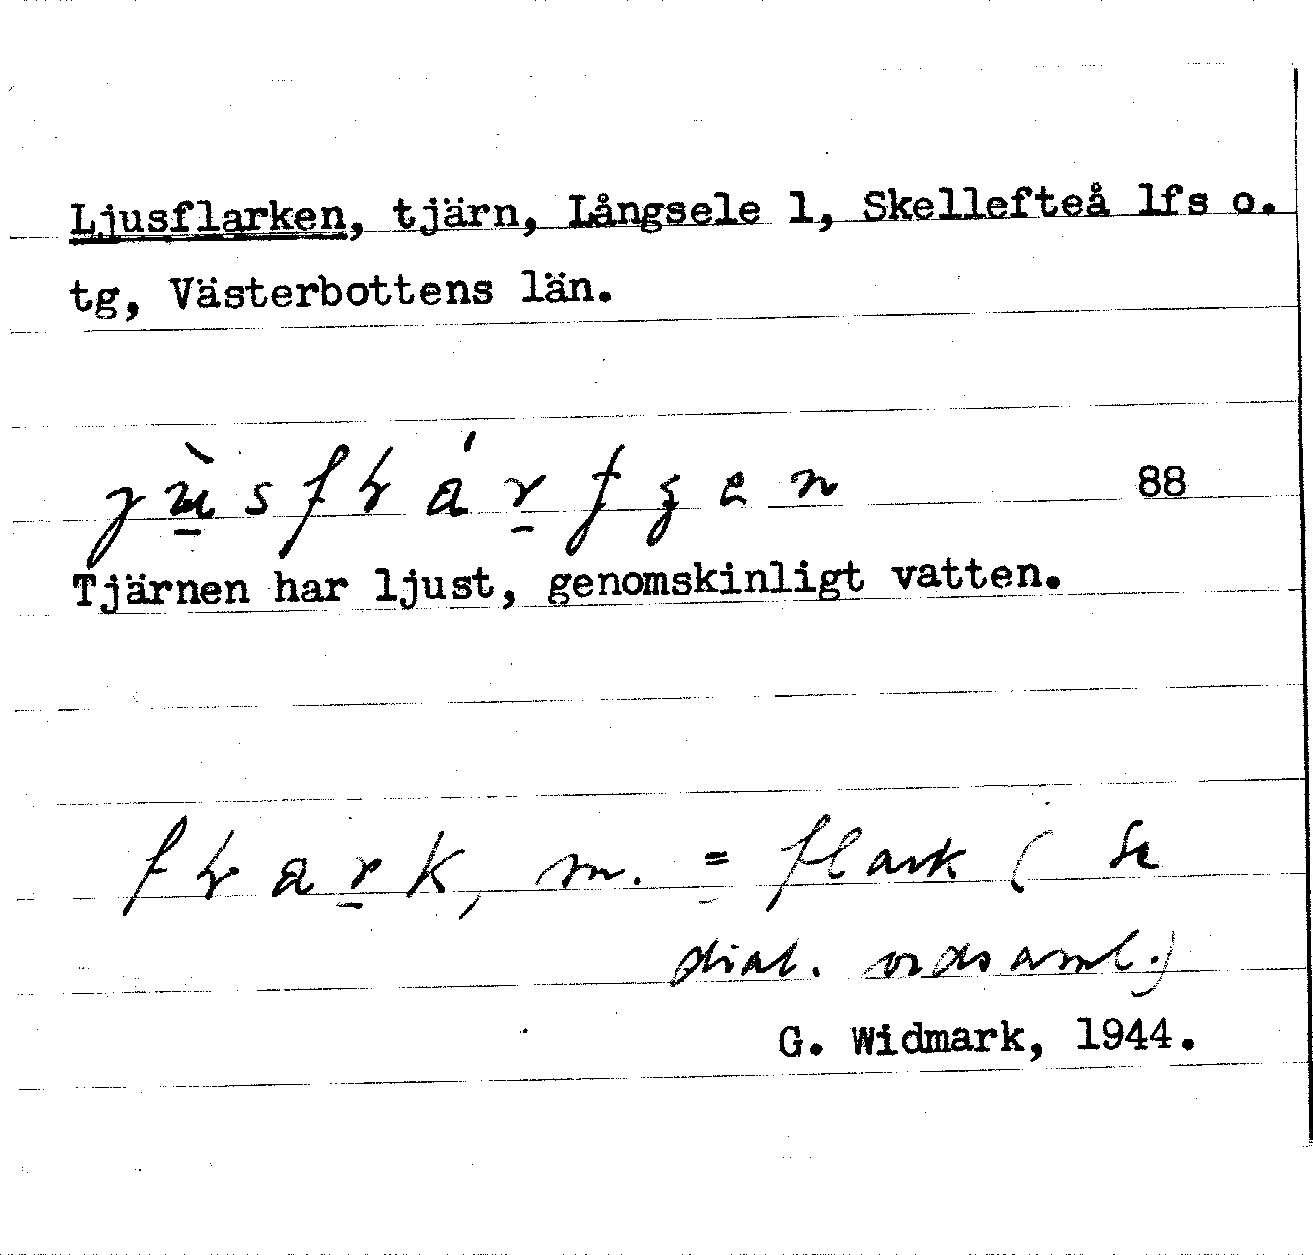 Ljusflarken, tjärn, Långsele l, Skellefteå lfs o.
tg, Västerbottens län.
88
Tjärnen har ljust, genomskinligt vatten.
m. = flark ( se
dial. ordsaml.)
G. Widmark, 1944.